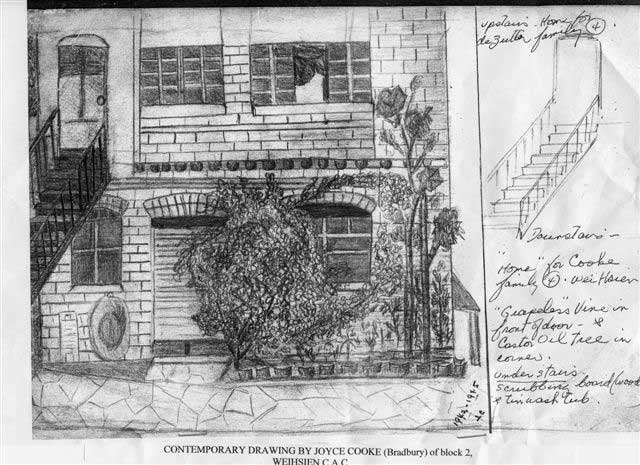 upstairs - Home for
de Zutter family ④.
Downstairs -
"Home" for Cooke
family ④. Wei Hsien
"Grapeless" Vine in
front of door - &
Castor Oil Tree in
corner.
under stairs
scrubbing board (wood
& tin wash tub.
1943-1945
JC
CONTEMPORARY DRAWING BY JOYCE COOKE (Bradbury) of block 2,
WEIHSIEN C.A.C.